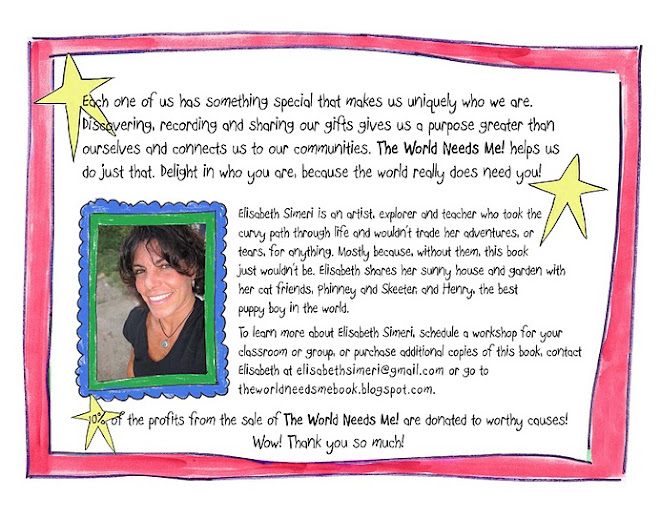 Each one of us has something special that makes us uniquely who we are.
Discovering, recording and sharing our gifts gives us a purpose greater than
ourselves and connects us to our communities. The World Needs Me! helps us
do just that. Delight in who you are, because the world really does need you!
Elisabeth Simeri is an artist, explorer and teacher who took the
curvy path through life and wouldn't trade her adventures, or
tears, for anything. Mostly because, without them, this book
just wouldn't be. Elisabeth shares her sunny house and garden with
her cat friends, Phinney and Skeeter, and Henry, the best
puppy boy in the world.
To learn more about Elisabeth Simeri, schedule a workshop for your
classroom or group, or purchase additional copies of this book, contact
Elisabeth at elisabethsimeri@gmail.com or go to
theworldneedsmebook.blogspot.com.
10% of the profits from the sale of The World Needs Me! are donated to worthy causes!
Wow! Thank you so much!